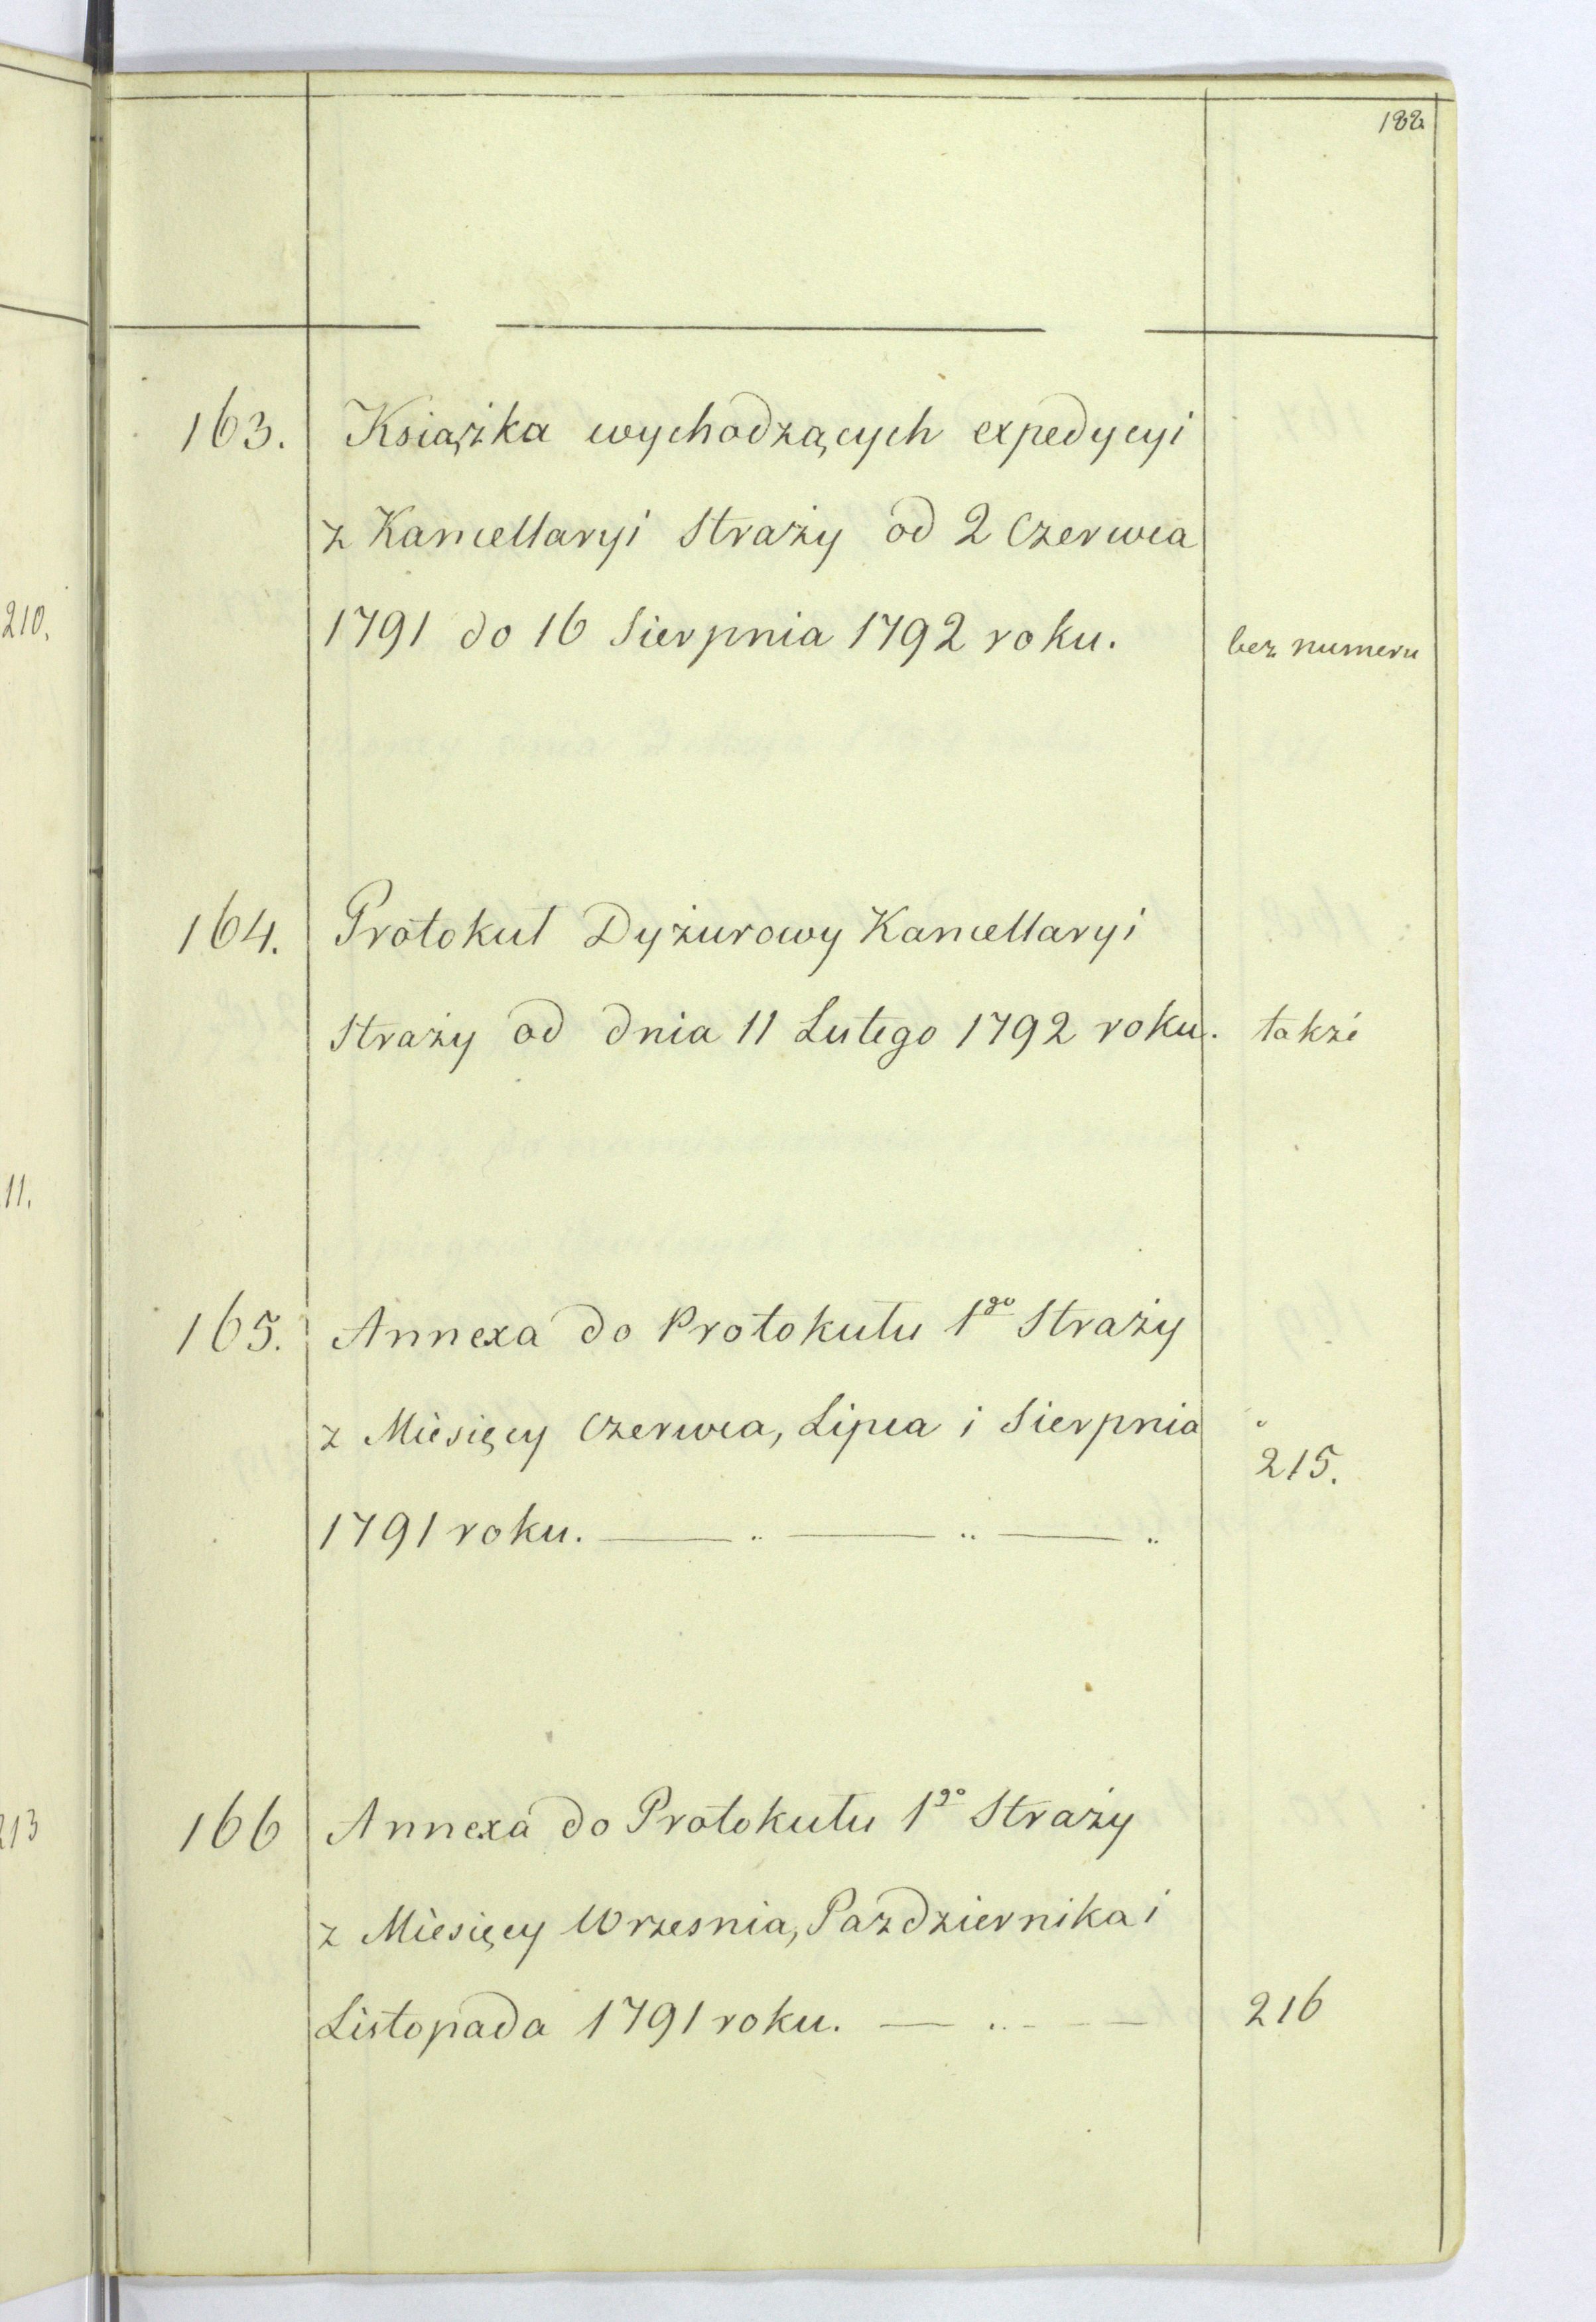 188
163. Książka wychodzących expedycyi
z Kancellaryi Straży od 2 Czerwca
1791 do 16 Sierpnia 1792 roku. bez numeru
164. Protokuł Dyżurowy Kancellaryi
Straży od dnia 11 Lutego 1792 roku. takżé
165. Annexa do Protokułu 1go Straży
z Miesięcy Czerwca, Lipca i Sierpnia
215.
1791 roku. — .. — .. — ..
166 Annexa do Protokułu 1go Straży
z Miesięcy Wrzesnia, Pazdziernika i
Listopada 1791 roku. — .. - - — 216
210.
11.
213